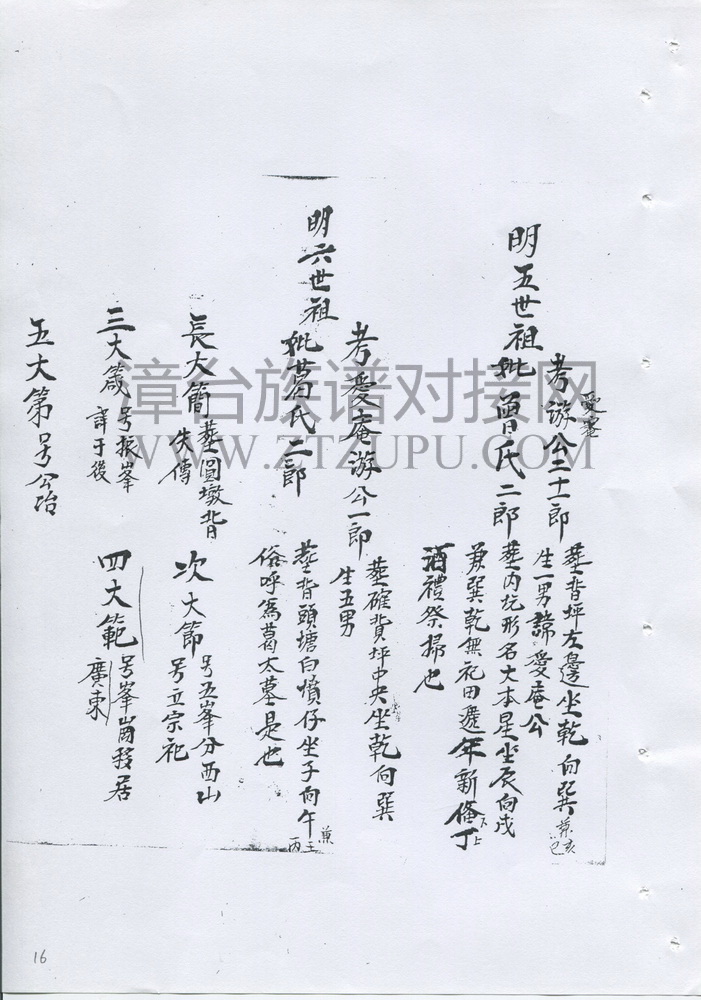 明五世祖
考游公二十一郎
愛蜜
葬背坪左邊坐乾向巽
兼亥巳
生一男諱愛庵公
妣曾氏二郎
葬內坑形名大本星坐辰向戌
兼巽乾無祀田遞年新俻丁
酒禮祭掃也
明六世祖
考愛庵游公一郎
葬確背坪中央坐乾向巽
生五男
妣葛氏二郎
葬背頭塘白墳仔坐子向午
兼壬丙
俗呼為葛太墓是也
長大簡
葬圓墩背
失傳
次大節
号五峯分西山
号立宗祀
三大箴
号振峯
詳于後
四大範
号峯崗移居
廣東
五大第号公冶
漳台族谱对接网
WWW.ZTZUPU.COM
16